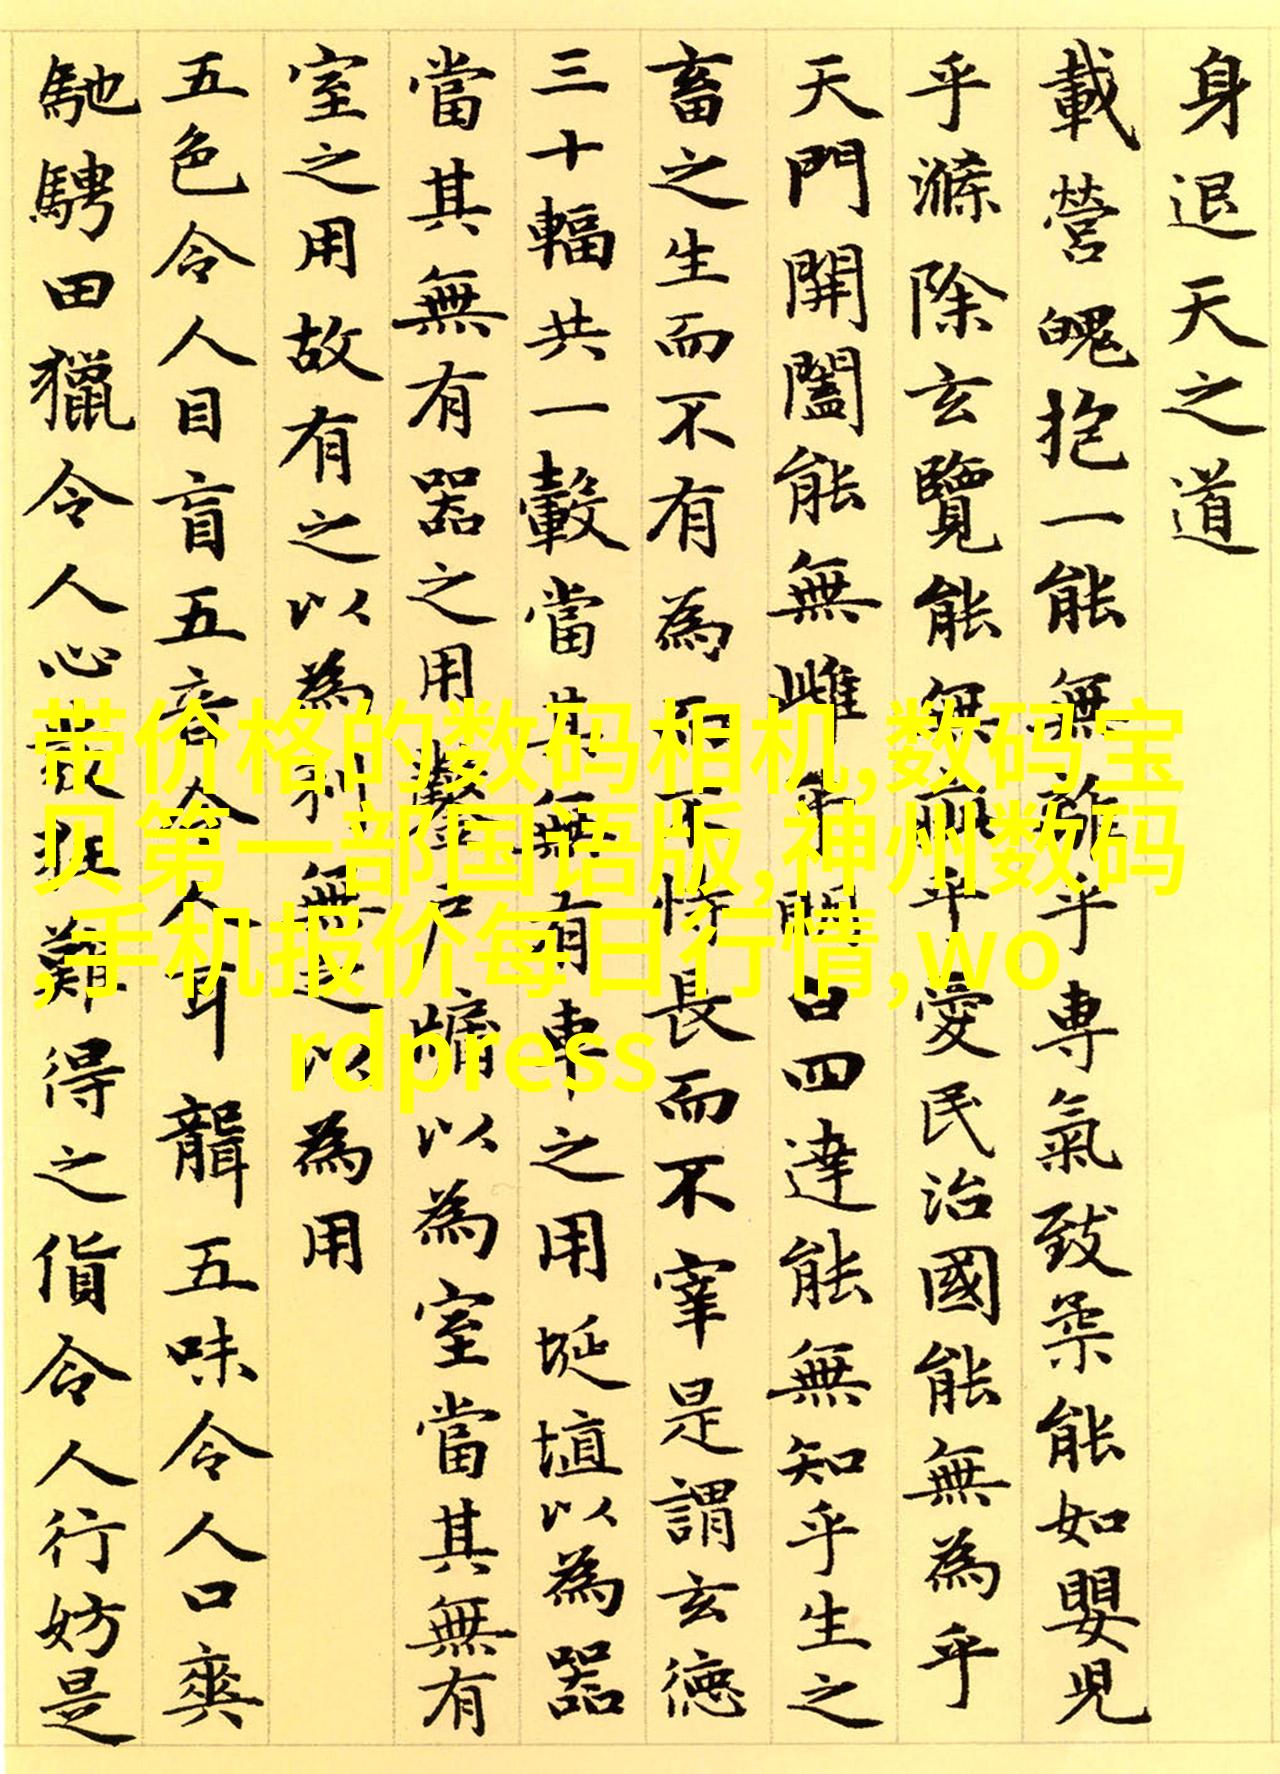 身退天之道
載營魄抱一能無乎專氣致柔能如嬰兒
乎滌除玄覽能無疵乎愛民治國能無為乎
天門開闔能無雌乎明白四達能無知乎生之
畜之生而不有為而不恃長而不宰是謂玄德
三十輻共一轂當其無有車之用埏埴以為器
當其無有器之用鑿戶牖以為室當其無有
室之用故有之以為利無之以為用
五色令人目盲五音令人耳聾五味令人口爽
馳騁田獵令人心發狂難得之貨令人行妨是
带价格的数码相机,数码宝
贝第一部国语版,神州数码
,手机报价每日行情,wo
rdpress